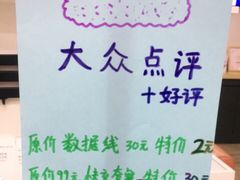 大众点评
+好评
原价 数据线 30元 特价 2元
原价99元 特价 30元